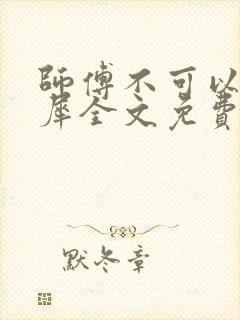 師傅不可以
犀全文免費
默冬章